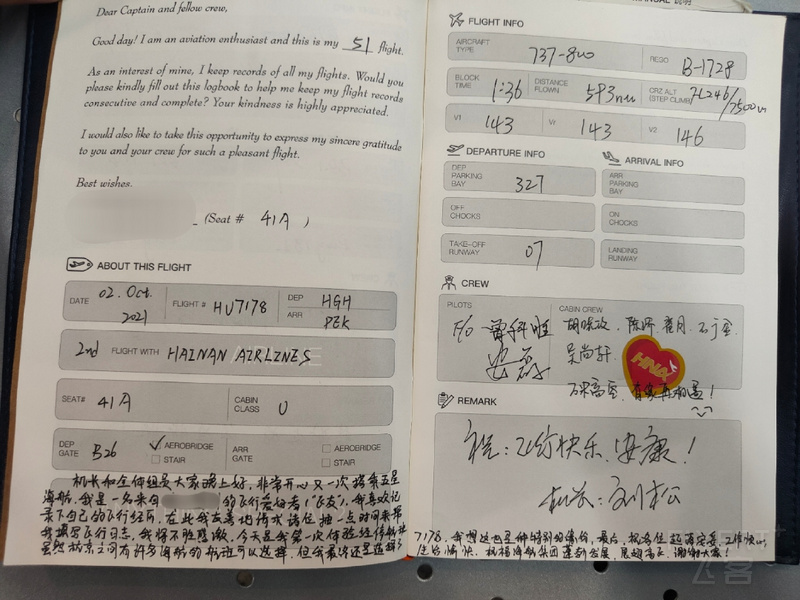 Dear Captain and fellow crew,
Good day! I am an aviation enthusiast and this is my 51 flight.
As an interest of mine, I keep records of all my flights. Would you
please kindly fill out this logbook to help me keep my flight records
consecutive and complete? Your kindness is highly appreciated.
I would also like to take this opportunity to express my sincere gratitude
to you and your crew for such a pleasant flight.
Best wishes.
(Seat # 41A )
ABOUT THIS FLIGHT
DATE 02. Oct. 2021 FLIGHT # HU7178 DEP HGH
ARR PEK
2nd FLIGHT WITH HAINAN AIRLINES
SEAT# 41A CABIN CLASS U
DEP GATE B26 ✓ AEROBRIDGE STAIR ARR GATE AEROBRIDGE STAIR
机长和全体机组 大家晚上好,非常开心又一次搭乘五星
海航,我是一名来自 的飞行爱好者("飞友"),我喜欢记
录下自己的飞行经历,在此我友善地请求诸位抽一点时间来帮
我填写飞行日志,我将不胜感激,今天是我第一次体验经停航班
虽然杭京之间有许多海航的航班可以选择,但我最终还是选择了
FLIGHT INFO
AIRCRAFT TYPE 737-800 REG© B-1728
BLOCK TIME 1:36 DISTANCE FLOWN 593nm CRZ ALT (STEP CLIMB) FL246/7500m
V1 143 Vr 143 V2 146
DEPARTURE INFO
DEP PARKING BAY 327
OFF CHOCKS
TAKE-OFF RUNWAY 07
ARRIVAL INFO
ARR PARKING BAY
ON CHOCKS
LANDING RUNWAY
CREW
PILOTS F/O
CABIN CREW
吴尚轩
HNA
万米高空,有缘再相遇!
REMARK
祝:飞行快乐,安康!
机长:刘松
7178,我想这也是种特别的缘份,最后,祝各位起落安妥,工作快心
生活愉快,祝福海航集团蓬勃发展,展翅高飞,谢谢大家!
飞客